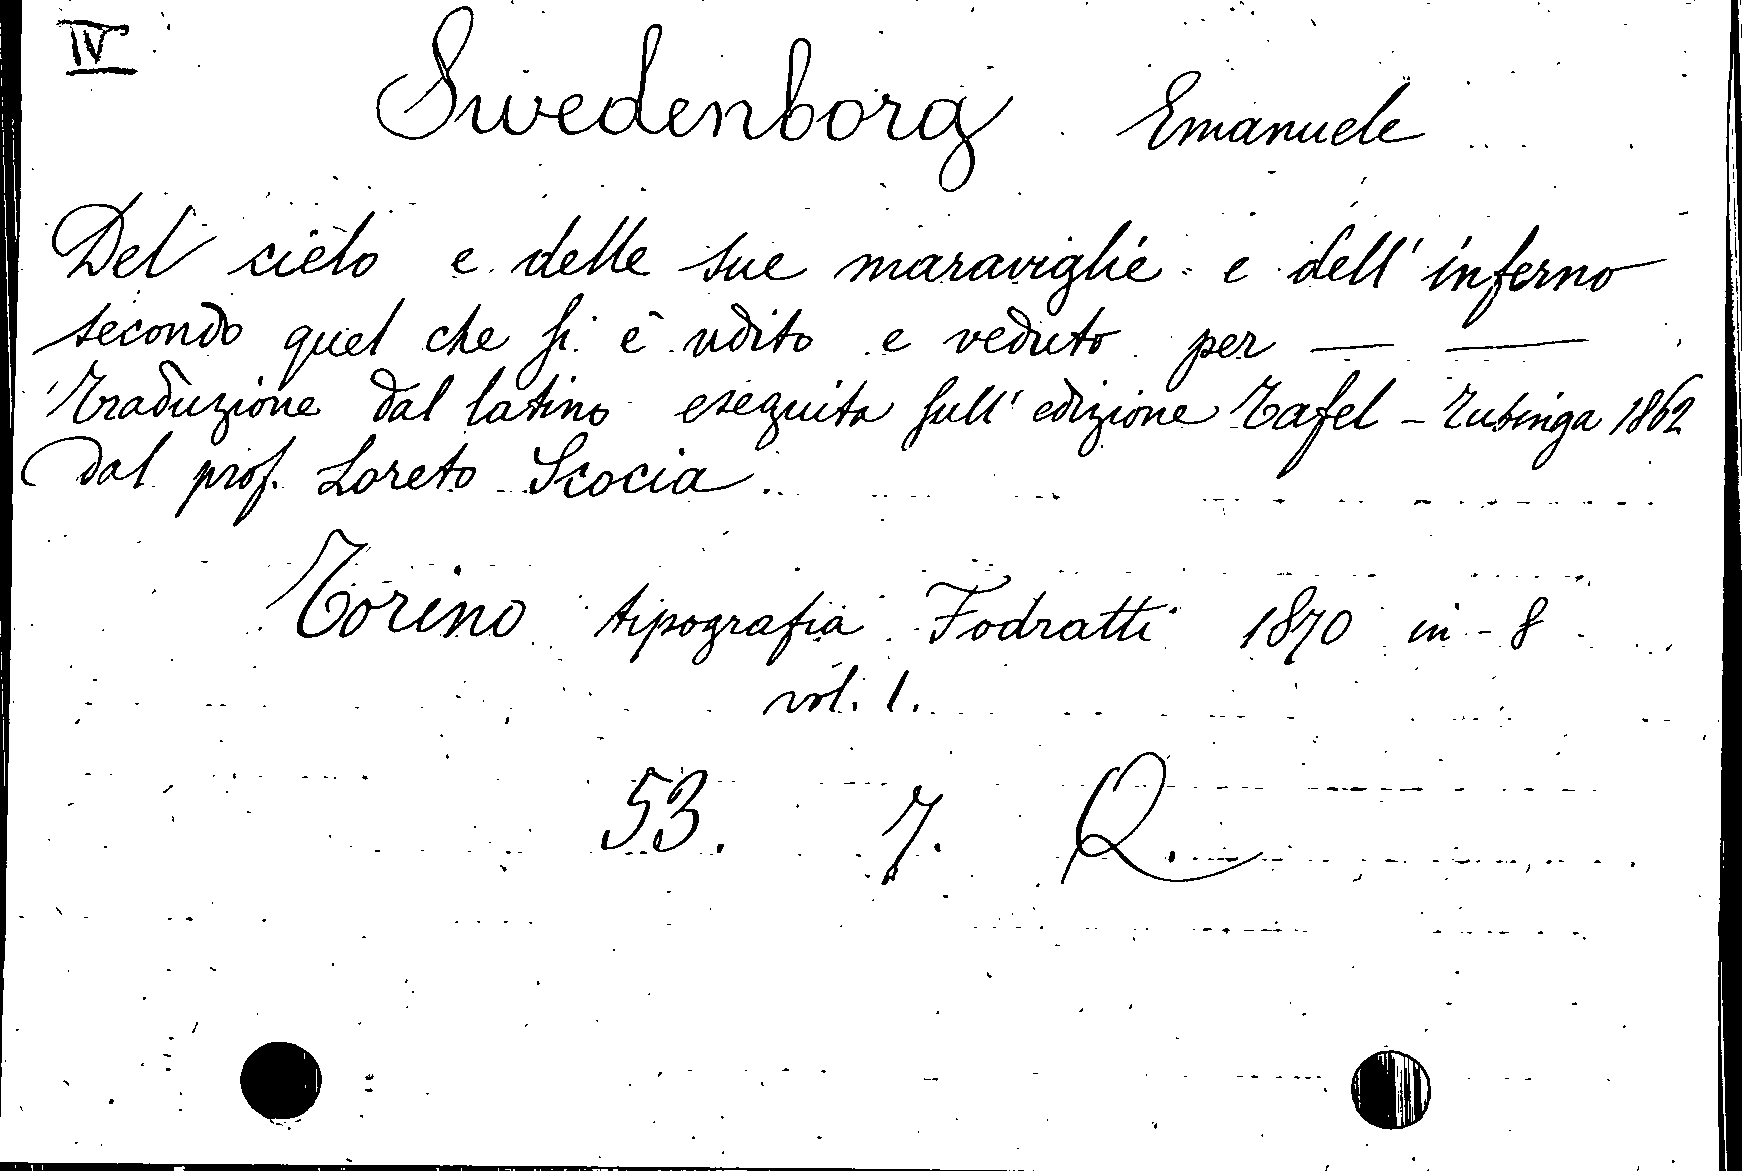 IV
Swedenborg Emanuele
Del cielo e delle sue maraviglie e dell' inferno
secondo quel che si è udito e veduto per — —
Traduzione dal latino eseguita sull' edizione Tafel - Tubinga 1862
dal prof. Loreto Scocia.
Torino tipografia Fodratti 1870 in-8
vol. 1.
53. 7. Q.